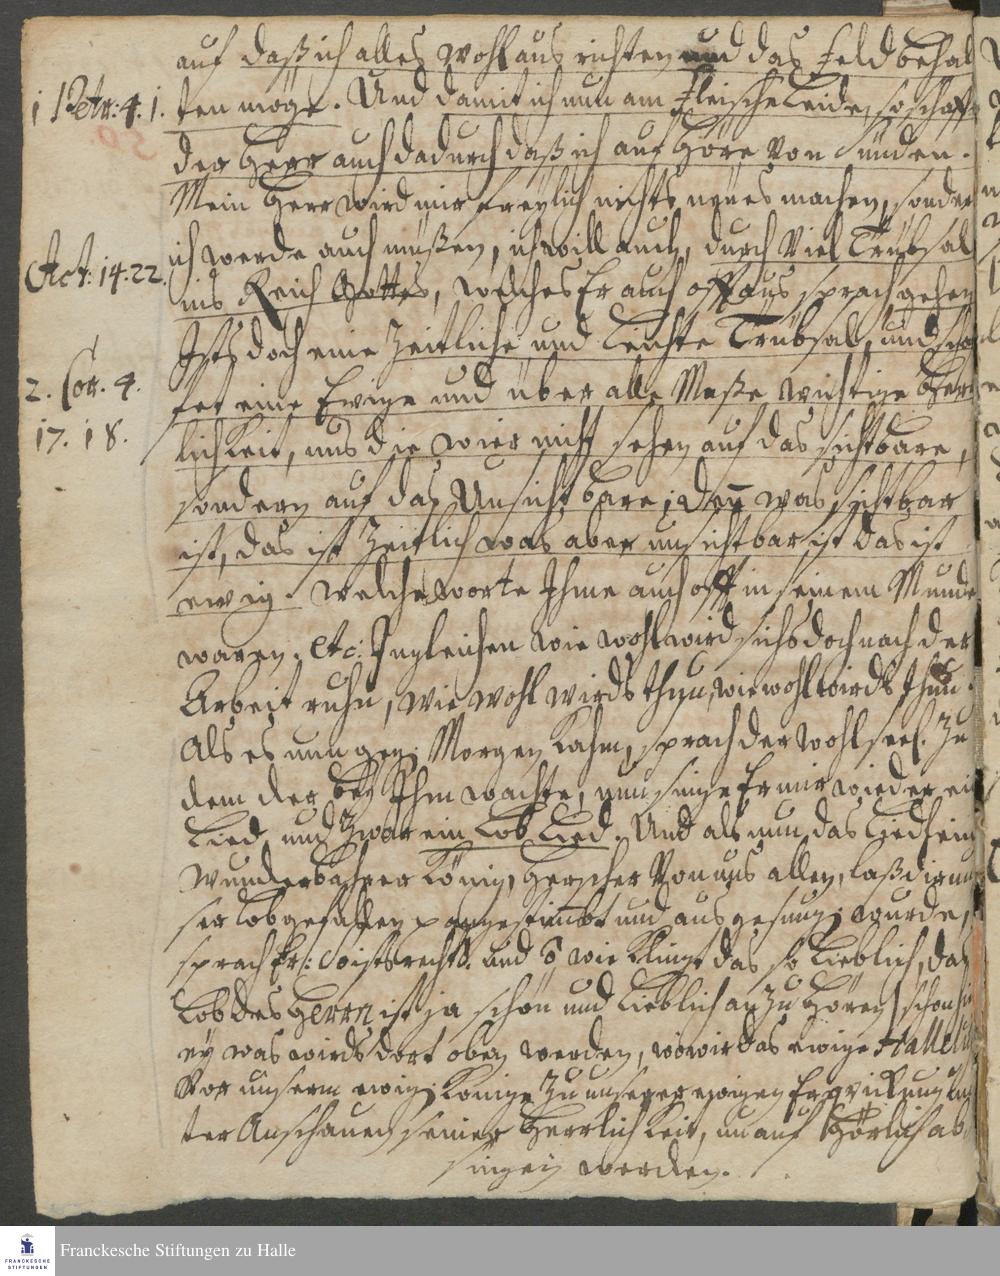 auf daß ich alles wohl aus richten und das Feld behal
1 Petr: 4. 1.
ten möge. Und damit ich nun am Fleische Leide, so schafft
der Herr auch dadurch daß ich auf Höre von Sünden.
Mein Herr wird mir freylich nichts neues machen, sonder
ich werde auch müßen, ich will auch, durch viel Trübsal
Act: 14. 22.
ins Reich Gottes, welches Er auch offt aus sprach gehen
Ists doch eine Zeitliche und Leichte Trübsal, und schaf
2. Cor. 4.
fet eine Ewige und über alle Maße wichtige Herr
17. 18.
lichkeit, uns die wier nicht sehen auf das sichtbare,
sondern auf das Unsichtbare; den̄ was sichtbar
ist, das ist Zeitlich was aber unsichtbar ist das ist
ewig. welche worte Ihme auch offt in seinem Munde
waren. etc: Ingleichen wie wohl wird sichs doch nach der
Arbeit ruhn, wie wohl wirds thun, wie wohl wirds Ihm
Als es nun gen Morgen kahm, sprach der wohlseel. zu
dem der bey Ihm wachte, nun singe Er mir wieder ein
Lied und zwar ein Lob Lied. Und als nun das Lied: ein
Wunderbahrer König, Herscher von uns allen, laß dir un
ser lob gefallen p angestimbt und aus gesungen wurde,
sprach Er: so ists recht. und O wie klingt das so Lieblich, das
Lob des Herrn ist ja schön und Lieblich an zu Hören schon hie
ey was wirds dort oben werden, wo wir das ewige Hallelu
Vor unserm ewigen Könige zu unserer ewigen Erqvickung un
ter Anschauen seiner Herrlichkeit, un auf Hörlich ab
singen werden.
Franckesche Stiftungen zu Halle
FRANCKESCHE
STIFTUNGEN